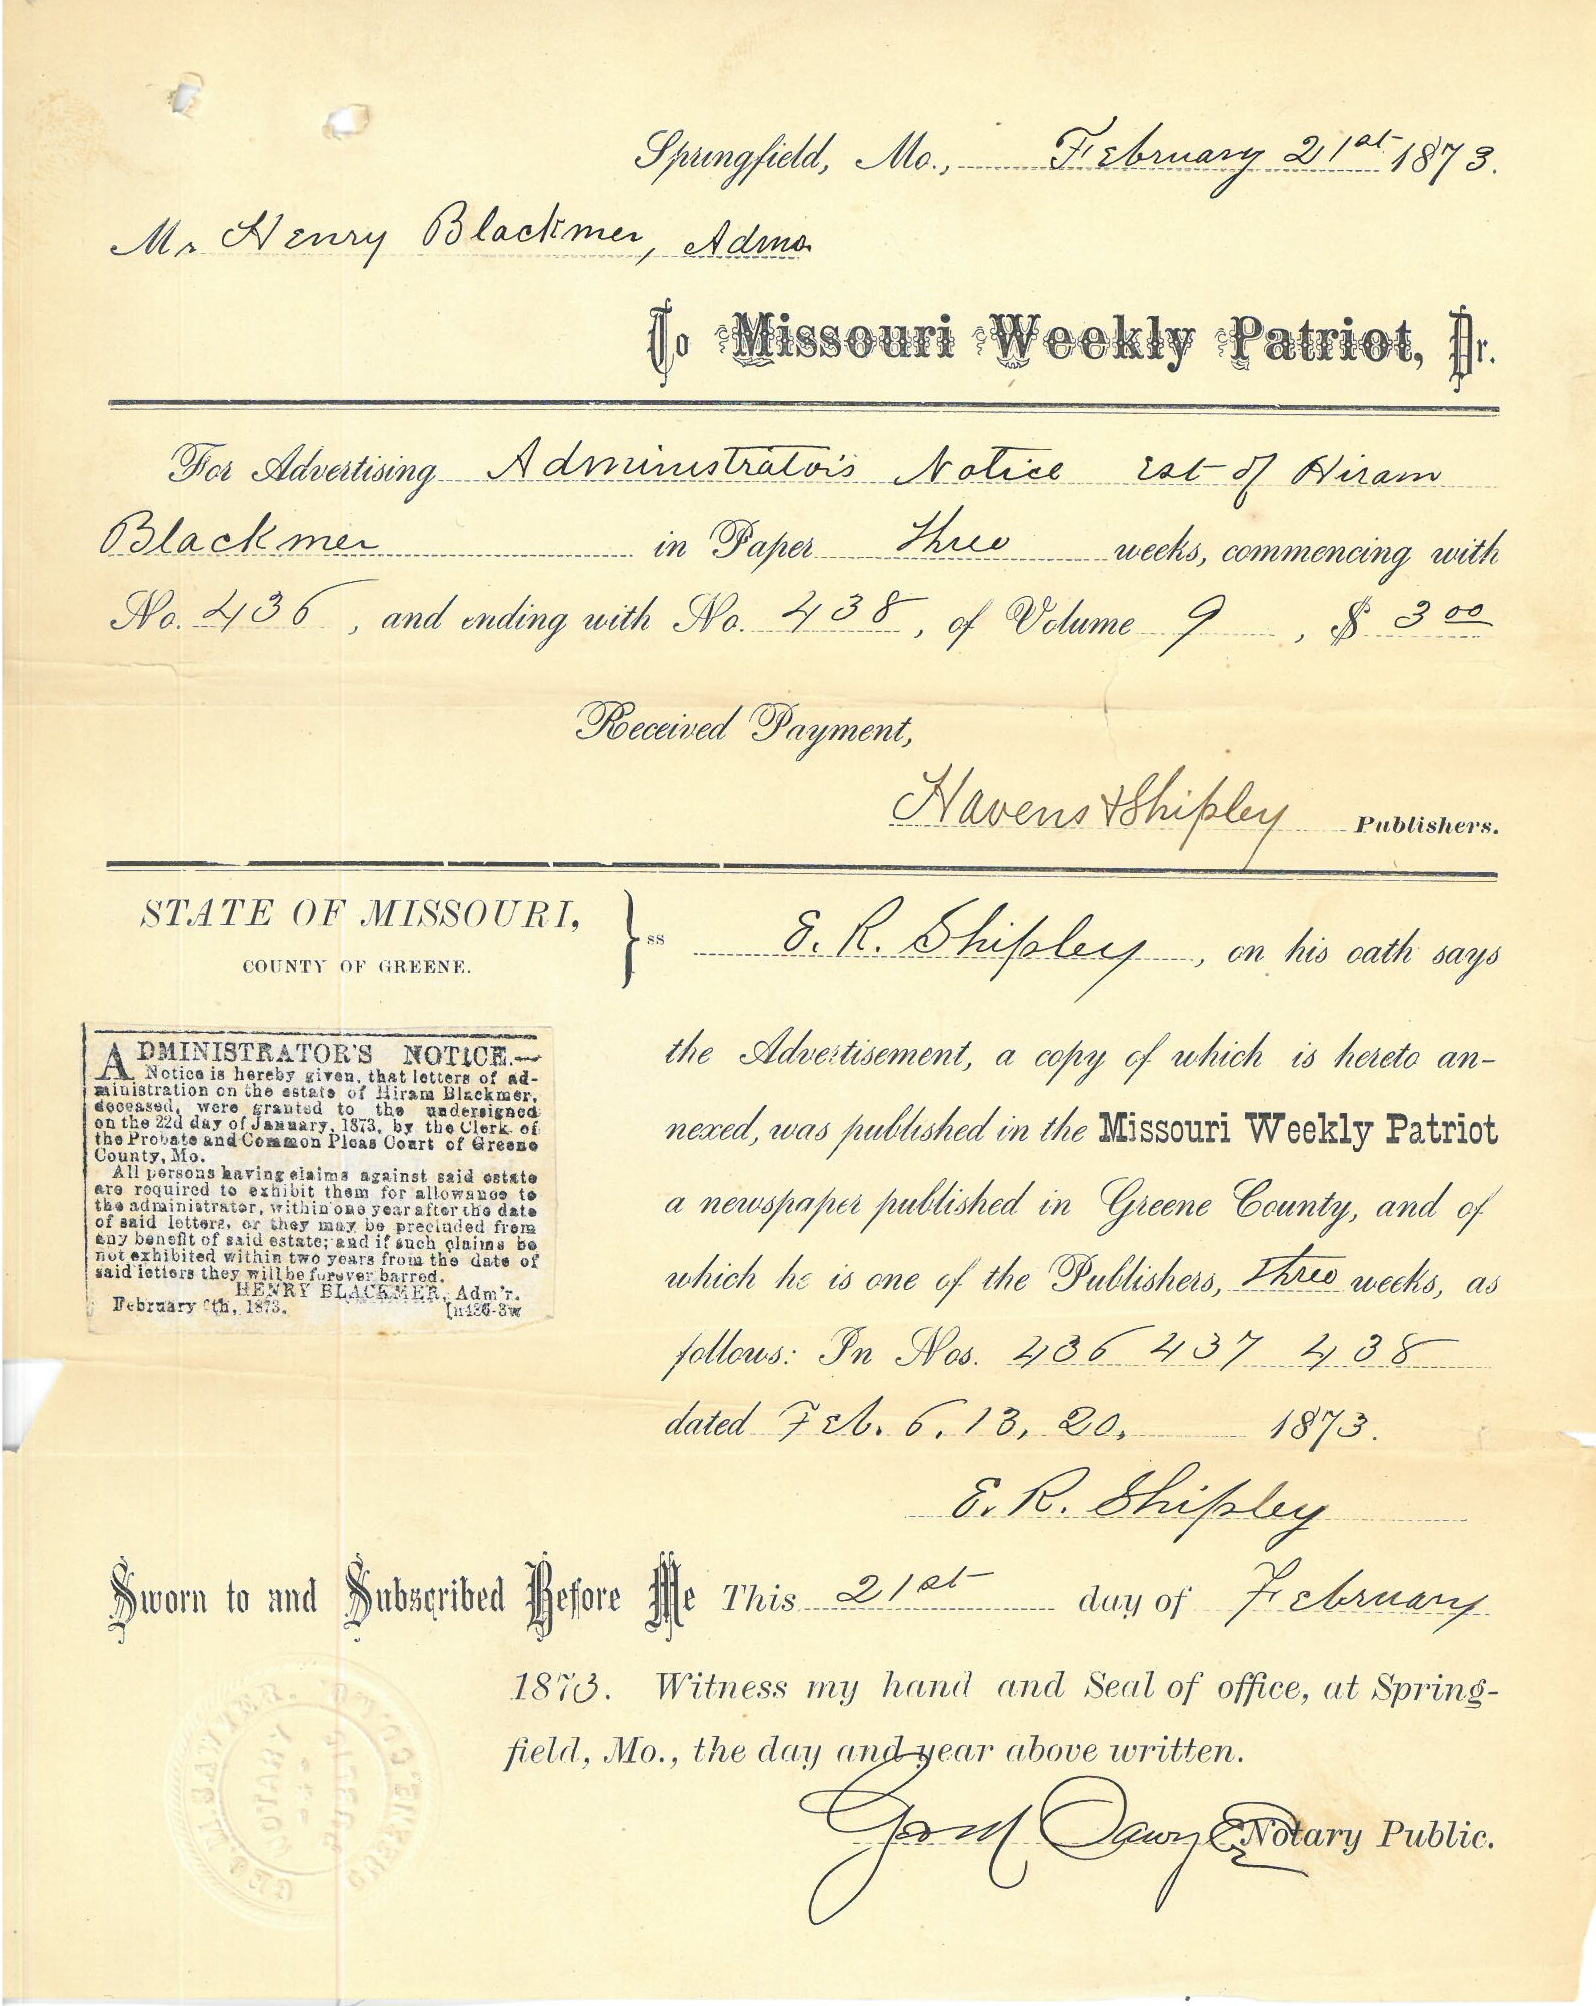 Springfield, Mo., February 21st 1873.
Mr Henry Blackmer, Admr
To Missouri Weekly Patriot, Dr.
For Advertising Administrator's Notice Est of Hiram
Blackmer in Paper three weeks, commencing with
No. 436, and ending with No. 438, of Volume 9, $ 3 00
Received Payment,
Havens & Shipley Publishers.
STATE OF MISSOURI,
COUNTY OF GREENE.
} ss
E. R. Shipley, on his oath says
the Advertisement, a copy of which is hereto an-
nexed, was published in the Missouri Weekly Patriot
a newspaper published in Greene County, and of
which he is one of the Publishers, three weeks, as
follows: In Nos. 436 437 438
dated Feb. 6, 13, 20, 1873.
E. R. Shipley
ADMINISTRATOR'S NOTICE.—
Notice is hereby given, that letters of ad-
ministration on the estate of Hiram Blackmer,
deceased, were granted to the undersigned
on the 22d day of January, 1873, by the Clerk of
the Probate and Common Pleas Court of Greene
County, Mo.
All persons having claims against said estate
are required to exhibit them for allowance to
the administrator, within one year after the date
of said letters, or they may be precluded from
any benefit of said estate; and if such claims be
not exhibited within two years from the date of
said letters they will be forever barred.
HENRY BLACKMER, Adm'r.
February 6th, 1873. [n436-3w
Sworn to and Subscribed Before Me This 21st day of February
1873. Witness my hand and Seal of office, at Spring-
field, Mo., the day and year above written.
Notary Public.
NOTARY